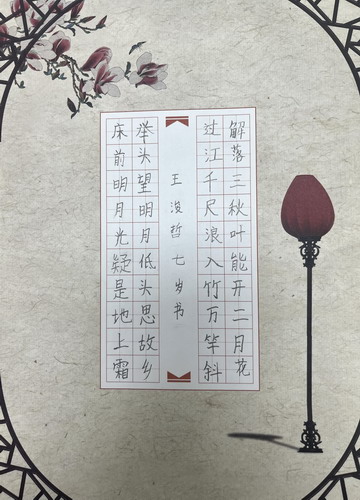 解落三秋叶能开二月花
过江千尺浪入竹万竿斜
王浚哲七岁书
床前明月光疑是地上霜
举头望明月低头思故乡